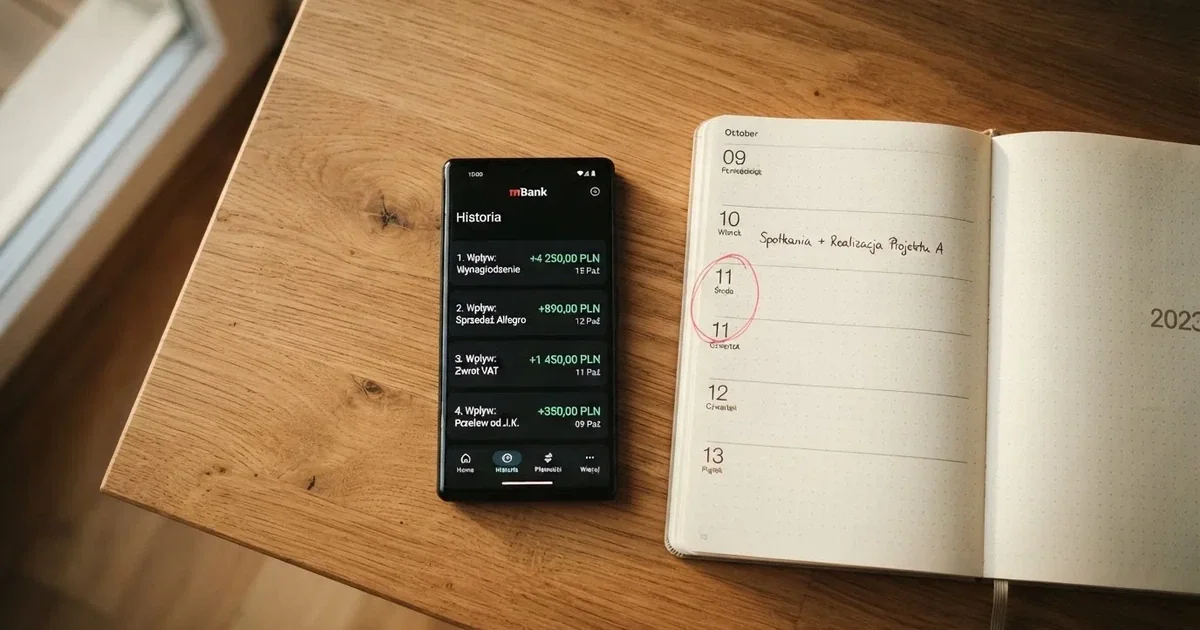 10:00
mBank
Historia
1. Wpływ: +4 250,00 PLN
Wynagiodsenie 15 Paź
2. Wpływ: +890,00 PLN
Sprzedaż Allegro 12 Paź
3. Wpływ: +1 450,00 PLN
Zwrot VAT 11 Paź
4. Wpływ: +350,00 PLN
Przelew od J.K. 09 Paź
Home Historia Więcej
October
09
10
Spotkania + Realizacja Projektu A
11
Środa
11
12
13
2023